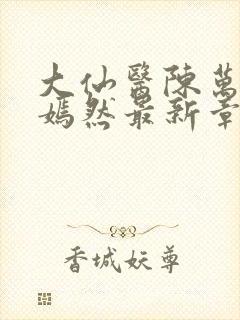 大仙醫陳萬
嫣然最新章
香城妖尊